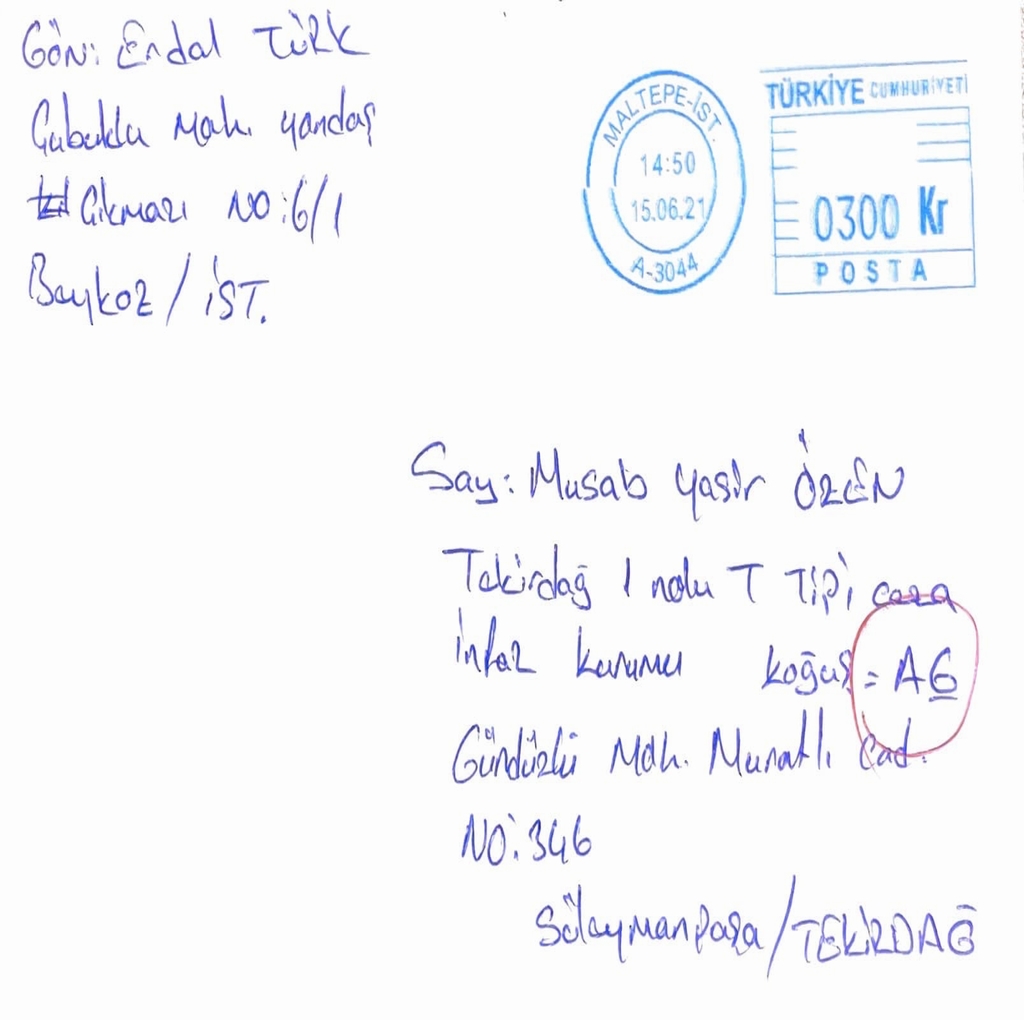 GÖN: Erdal TÜRK
Çubuklu Mah. yandaş
Çıkmazı NO:6/1
Beykoz / İST.
MALTEPE-İST.
14:50
15.06.21
A-3044
TÜRKİYE CUMHURİYETİ
0300 Kr
POSTA
Say: Musab Yasir ÖZEN
Tekirdağ 1 nolu T TİPİ ceza
infaz kurumu koğuş = A6
Gündüzlü Mah. Muratlı Cad.
NO: 346
Süleymanpaşa/TEKİRDAĞ